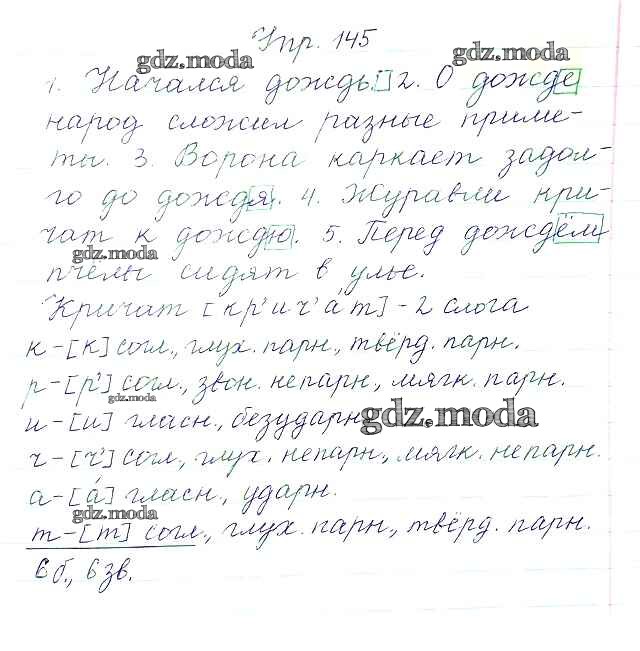 Упр. 145
gdz.moda
gdz.moda
1. Начался дождь. 2. О дожде
народ сложил разные приме-
ты. 3. Ворона каркает задол-
го до дождя. 4. Журавли кри-
чат к дождю. 5. Перед дождём
gdz.moda
пчёлы сидят в улье.
Кричат [кр'ич'а́т] - 2 слога
к - [к] согл., глух. парн., твёрд. парн.
р - [р'] согл., звон. непарн., мягк. парн.
gdz.moda
и - [и] гласн., безударн.
gdz.moda
ч - [ч'] согл., глух. непарн., мягк. непарн.
а - [а́] гласн., ударн.
gdz.moda
т - [т] согл., глух. парн., твёрд. парн.
6 б., 6 зв.